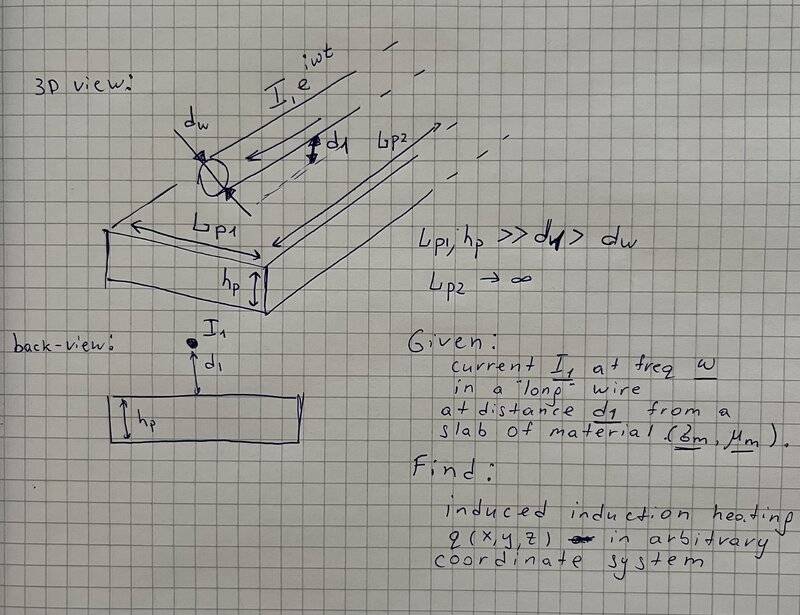 3D view:
I₁e^iwt
dw
d1
Lp2
Lp1
hp
Lp1, hp >> d1 > dw
Lp2 → ∞
back-view:
I1
d1
hp
Given:
current I1 at freq w
in a "long" wire
at distance d1 from a
slab of material (σm, μm).
Find:
induced induction heating
q(x,y,z) in arbitrary
coordinate system